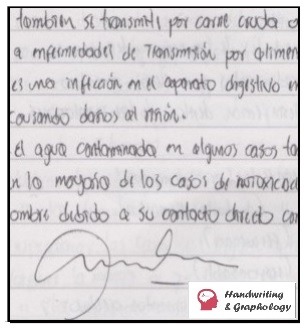 también se transmite por carne cruda o
a enfermedades de Transmisión por alimen
es una infección en el aparato digestivo
causando daños al riñón.
el agua contaminada en algunos casos ta
n la mayoría de los casos de
ombre debido a su contacto directo con
Handwriting
& Graphology